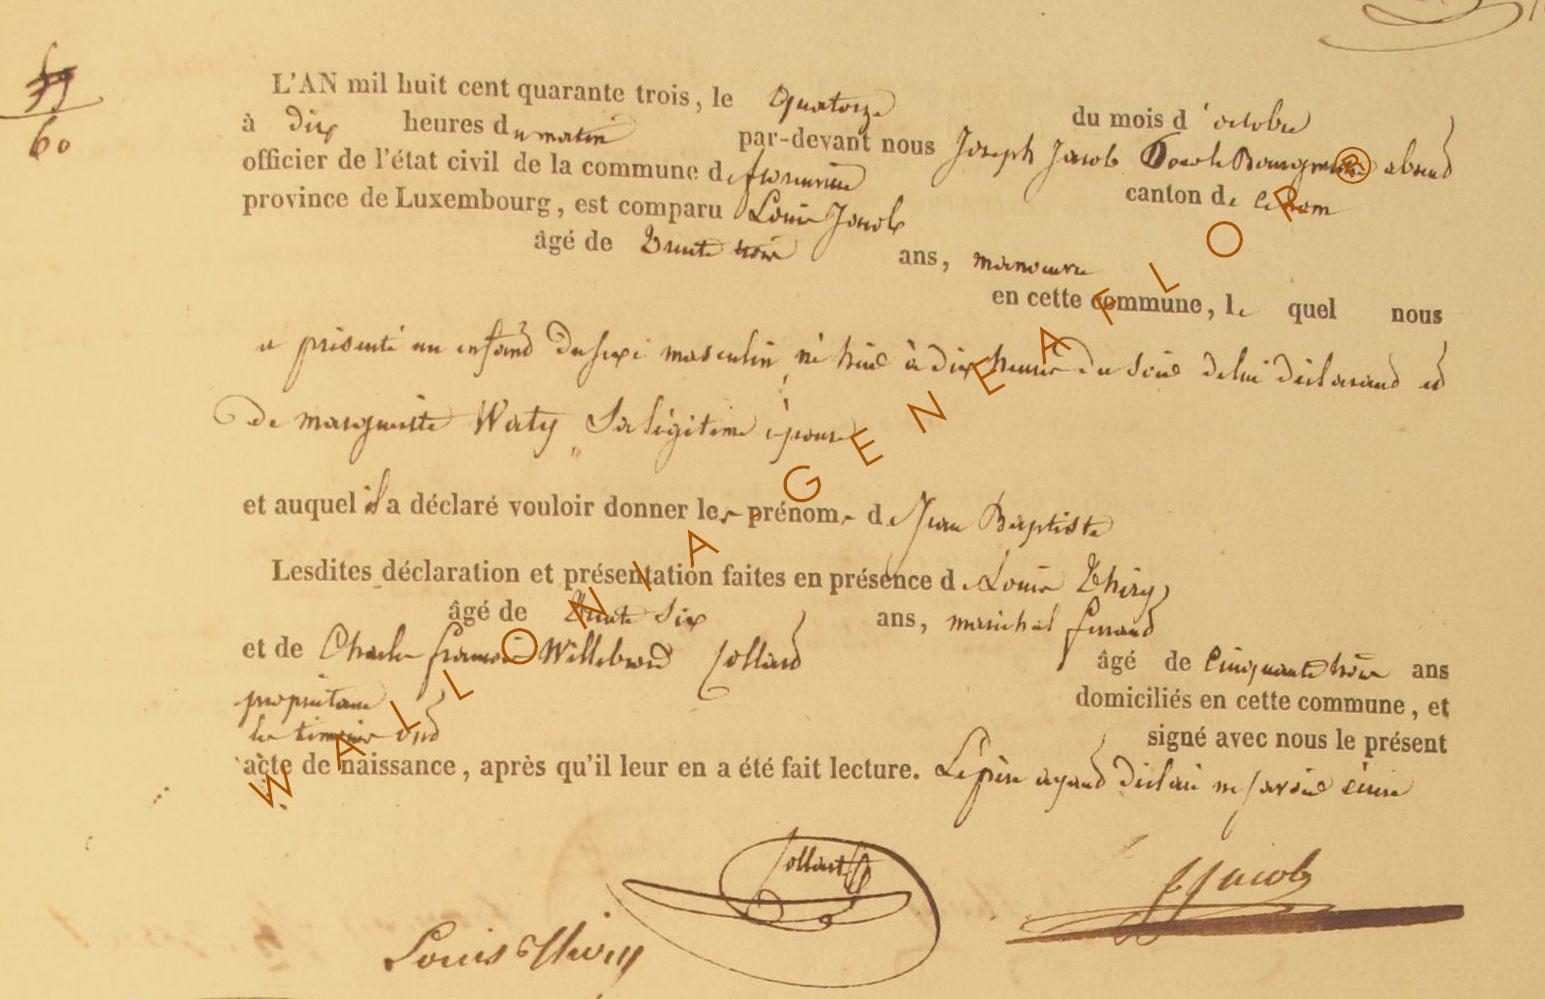 59
60
L'AN mil huit cent quarante trois, le quatorze du mois d'octobre
à dix heures du matin par-devant nous Joseph Jacob Bourgmestre absent
officier de l'état civil de la commune de canton de
province de Luxembourg, est comparu Louis Jacob
âgé de trente trois ans, manœuvre
en cette commune, lequel nous
a présenté un enfand du sexe masculin, né hier à dix heures du soir de lui déclarand et
de marguerite Waty, Sa légitime épouse
et auquel il a déclaré vouloir donner les prénoms de Jean Baptiste
Lesdites déclaration et présentation faites en présence de Louis Thiry
âgé de trente six ans, maréchal ferrand
et de Charles françois Willebrord Collard âgé de cinquante trois ans
propriétaire domiciliés en cette commune, et
les témoins ont signé avec nous le présent
acte de naissance, après qu'il leur en a été fait lecture. Le père ayand déclaré ne savoir écrire
Collart
J Jacob
Louis Thiry
WALLONIA-GENEAFLOR®